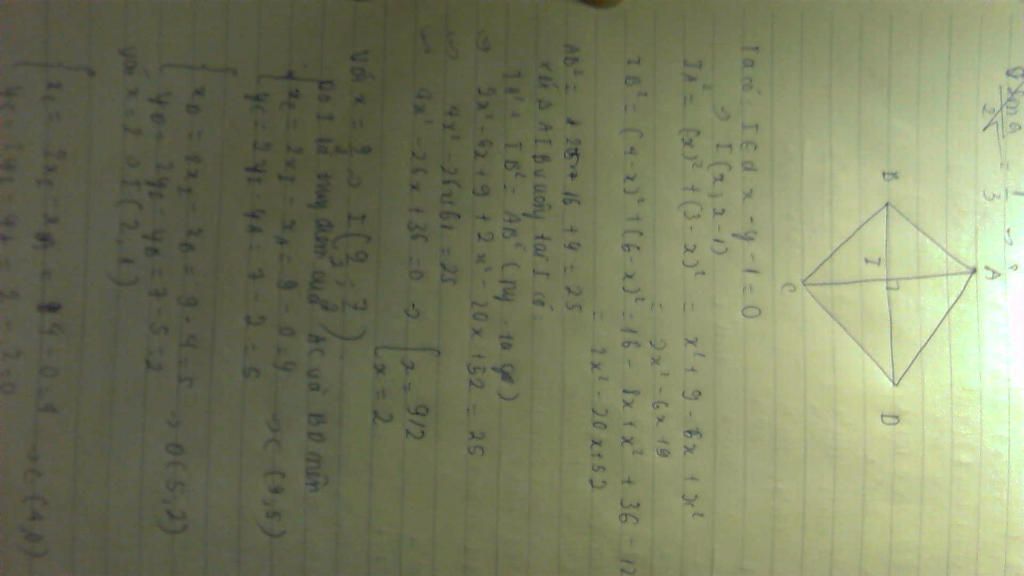 A
B
I
D
C
Ta có: I ∈ d x - y - 1 = 0
→ I(x, x-1)
IA² = (x)² + (3-x)² = x² + 9 - 6x + x²
= 2x² - 6x + 9
IB² = (4-x)² + (6-x)² = 16 - 8x + x² + 36 - 12
= 2x² - 20x + 52
AB² = 16 + 9 = 25
Xét Δ AIB vuông tại I có:
IA² + IB² = AB² (Py-ta-go)
2x² - 6x + 9 + 2x² - 20x + 52 = 25
4x² - 26x + 61 = 25
4x² - 26x + 36 = 0 → { x = 9/2
x = 2
Với x = 9/2 → I(9/2; 7/2)
Do I là trung điểm của AC và BD nên
{ xC = 2xI - xA = 9 - 0 = 9
yC = 2yI - yA = 7 - 2 = 5 → C(9,5)
{ xD = 2xI - xB = 9 - 4 = 5
yD = 2yI - yB = 7 - 5 = 2 → D(5,2)
với x = 2 → I(2,1)
{ xC = 2xI - xA = 4 - 0 = 4
yC = 2yI - yA = 2 - 2 = 0 → C(4,0)